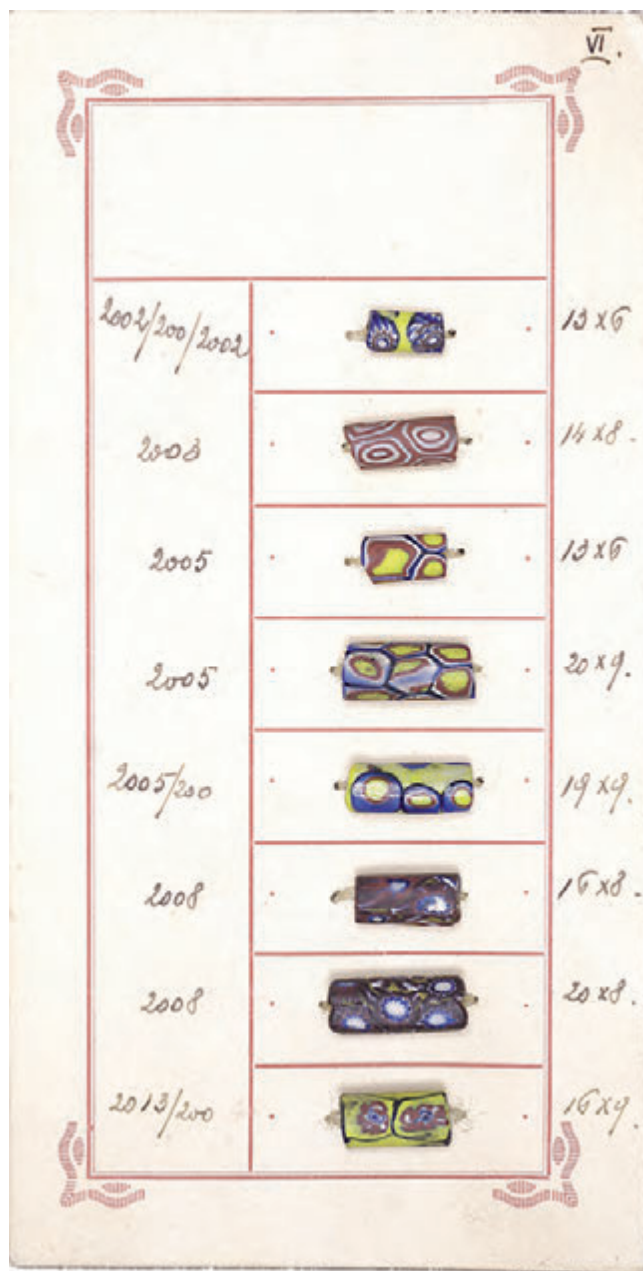 VI.
2002/200/2002 13 x 6
2003 14 x 8.
2005 13 x 6
2005 20 x 9.
2005/200 19 x 9.
2008 16 x 8.
2008 20 x 8.
2013/200 16 x 9.